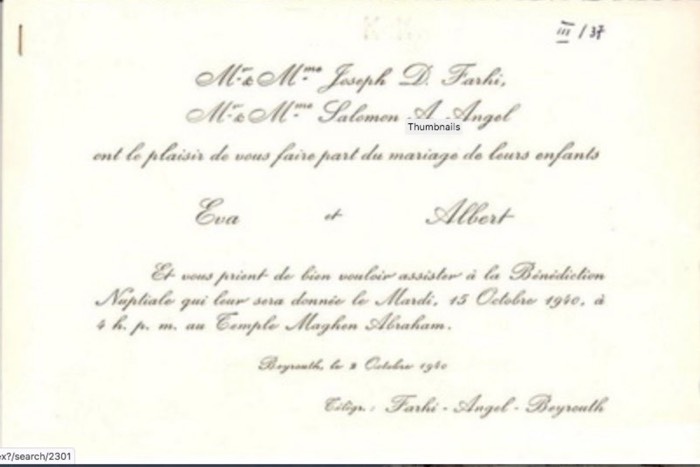 III / 37
Mr & Mme Joseph D. Farhi,
Mr & Mme Salomon A. Angel
Thumbnails
ont le plaisir de vous faire part du mariage de leurs enfants
Eva et Albert
Et vous prient de bien vouloir assister à la Bénédiction
Nuptiale qui leur sera donnée le Mardi, 15 Octobre 1940, à
4 h. p. m. au Temple Maghen Abraham.
Beyrouth, le 2 Octobre 1940
Télégr.: Farhi - Angel - Beyrouth
ex?/search/2301